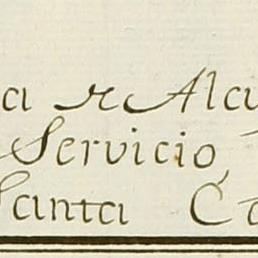 a de Ala
Servicio
Santa Ca